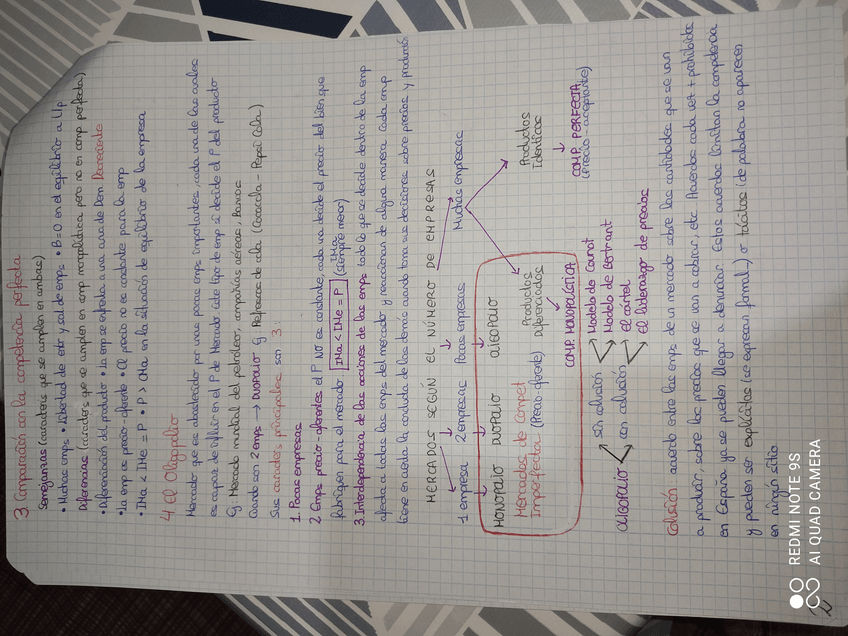 3. Comparación con la competencia perfecta
Semejanzas (caracters que se cumplen en ambas)
• Muchas emps • Libertad de entr y sal de emps • B=0 en el equilibrio a L/p
Diferencias (caracters que se cumplen en comp monopolística pero no en comp perfecta)
• Diferenciación del producto • La emp se enfrenta a una curva de Dem Decreciente
• La emp es precio-oferente • El precio no es constante para la emp
• IMa < IMe = P • P > CMa en la situación de equilibrio de la empresa
4 El Oligopolio
Mercador que es abastecidor por unas pocas emps importantes, cada una de las cuales
es capaz de influir en el P de Mercado. Este tipo de emp sí decide el P del producto
Ej Mercado mundial del petróleo, compañías aéreas, Bancos
Cuando son 2 emps → DUOPOLIO Ej Refrescos de cola (Cocacola - Pepsi Cola)
Sus caracters principales son 3:
1. Pocas empresas
2 Emps precio-oferentes el P NO es constante, cada una decide el precio del bien que
fabriquen para el mercado IMa < IMe = P (IMa siempre menor)
3. Interdependencia de las acciones de las emps todo lo que se decide dentro de la emp
afecta a todas las emps del mercado y reaccionan de alguna manera. Cada emp
tiene en cuenta la conducta de las demás cuando toma sus decisiones sobre precios y producción
MERCADOS SEGÚN EL NÚMERO DE EMPRESAS
1 empresa 2 empresas Pocas empresas Muchas empresas
MONOPOLIO DUOPOLIO OLIGOPOLIO
Productos Diferenciados
Productos Idénticos
Mercados de Compet
Imperfecta (Precio-oferente)
COMP. MONOPOLÍSTICA
COMP. PERFECTA
(Precio-aceptante)
OLIGOPOLIO
sin colusión
Modelo de Cournot
Modelo de Bertrant
con colusión
El cártel
El liderazgo de precios
Colusión: acuerdo entre las emps de un mercado sobre las cantidades que se van
a producir, sobre los precios que se van a cobrar, etc. Acuerdos cada vez + prohibidos
en España ya se pueden llegar a denunciar. Estos acuerdos limitan la competencia
y pueden ser explícitos (se expresan formal) o tácitos (de palabra no aparecen
en ningún sitio
REDMI NOTE 9S
AI QUAD CAMERA